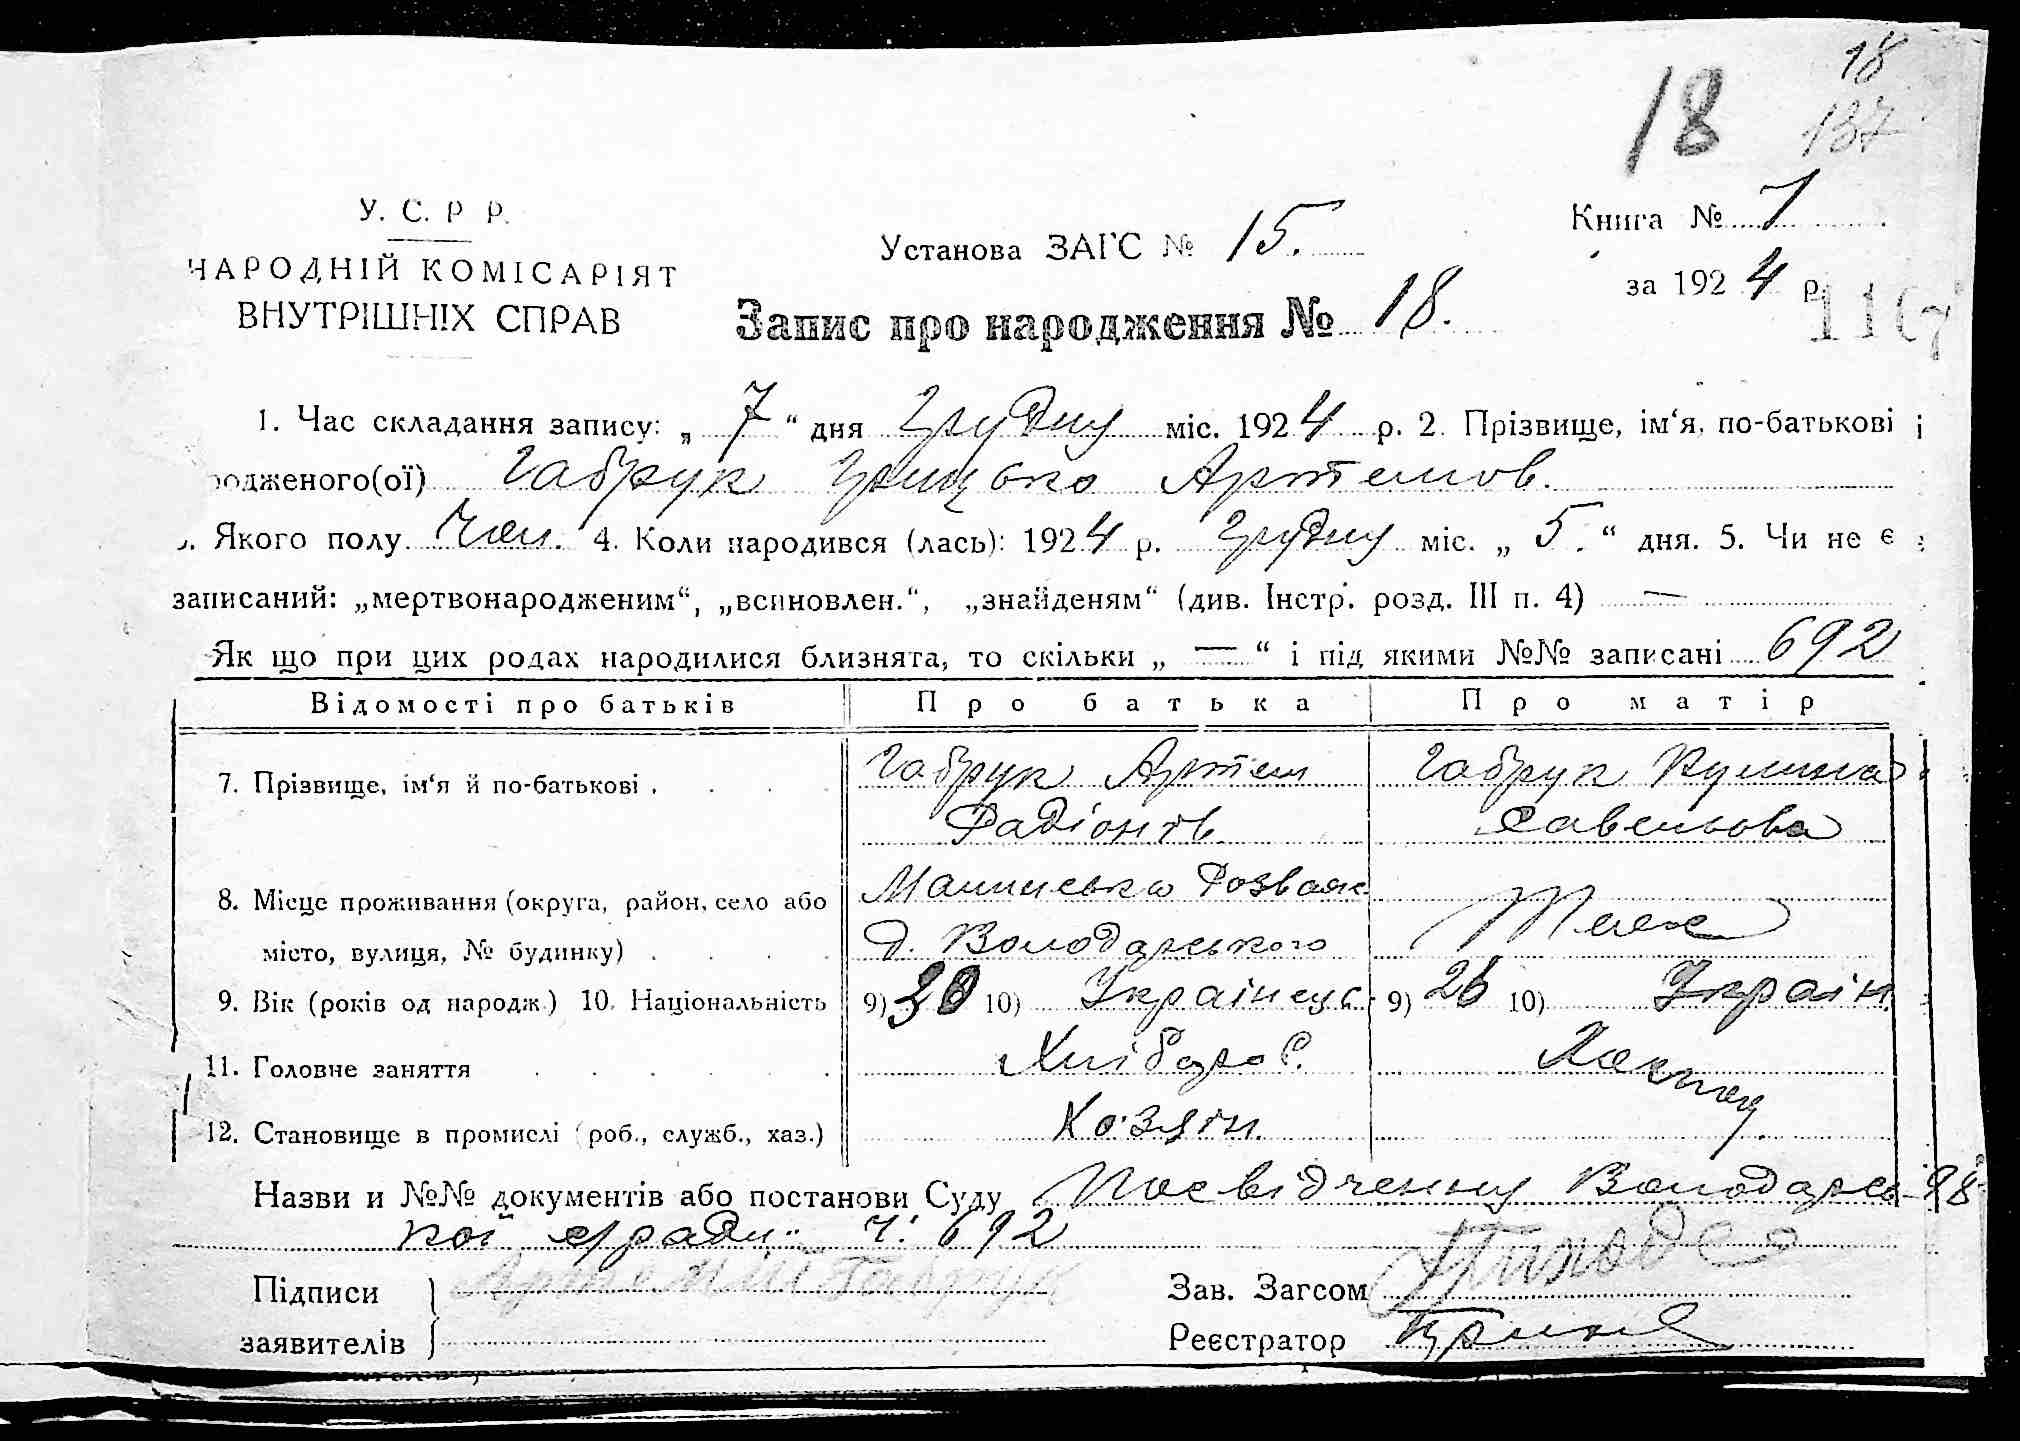 18
18
137
У. С. Р. Р.
НАРОДНІЙ КОМІСАРІЯТ
ВНУТРІШНІХ СПРАВ
Установа ЗАГС № 15.
Книга № 1
за 1924 р.
Запис про народження № 18.
1. Час складання запису: „ 7 “ дня Грудня міс. 1924 р. 2. Прізвище, ім‘я, по-батькові
родженого(ої) Габрук Грицько Артемов.
Якого полу Чол. 4. Коли народився (лась): 1924 р. Грудня міс. „ 5. “ дня. 5. Чи не є
записаний: „мертвонародженим“, „всиновлен.“, „знайденям“ (див. Інстр. розд. III п. 4) —
Як що при цих родах народилися близнята, то скільки „ — “ і під якими №№ записані 692
Відомості про батьків Про батька Про матір
7. Прізвище, ім‘я й по-батькові . Габрук Артем Габрук Кулина
Радіонів Савельова
8. Місце проживання (округа, район, село або Малинсько Розваж
місто, вулиця, № будинку) . д. Володарського
9. Вік (років од народж.) 10. Національність 9) 30 10) Українець 9) 26 10) Україн.
11. Головне заняття Хлібороб.
12. Становище в промислі (роб., служб., хаз.) Хозяін.
Назви и №№ документів або постанови Суду Посвідчення Володарсь-
кої с/ради ч. 692
Підписи Артемий Габрук Зав. Загсом
заявителів Реєстратор